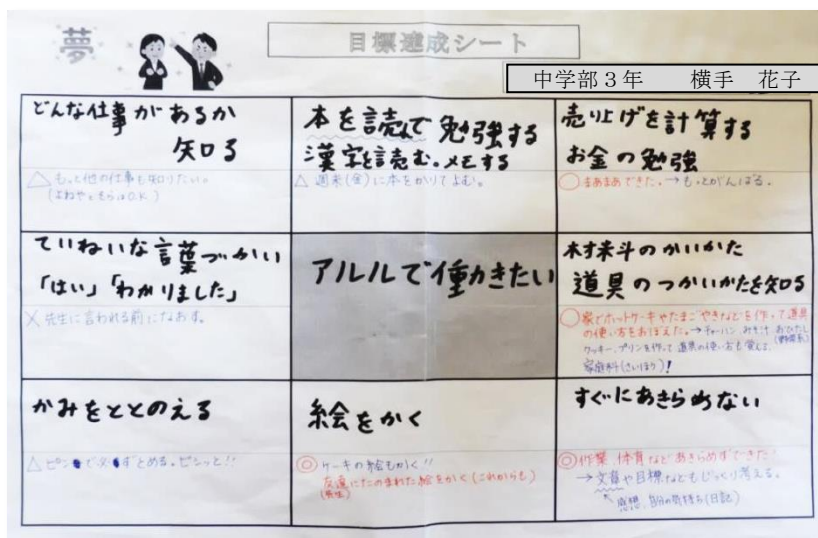 夢
目標達成シート
中学部３年　横手　花子
どんな仕事があるか
知る
△もっと他の仕事も知りたい。
本を読んで勉強する
漢字を読む。メモする
△週末(金)に本をかりてよむ。
売り上げを計算する
お金の勉強
○まあまあできた。→もっとがんばる。
ていねいな言葉づかい
「はい」「わかりました」
×先生に言われる前になおす。
アルルで働きたい
材料のつかいかた
道具のつかいかたを知る
○家でホットケーキやたまごやきなどを作って道具
の使い方をおぼえた。→チャーハン、みそ汁、おひたし
クッキー、プリンを作って道具の使い方も覚える
家庭科(さいほう)！
かみをととのえる
△ピンで必ずとめる。ピシッと!!
絵をかく
◎ケーキの絵もかく!!
友達にたのまれた絵をかく(これからも)
(先生)
すぐにあきらめない
◎作業、体育などあきらめずできた！
→文章や目標などもじっくり考える。
感想、自分の気持ち(日記)